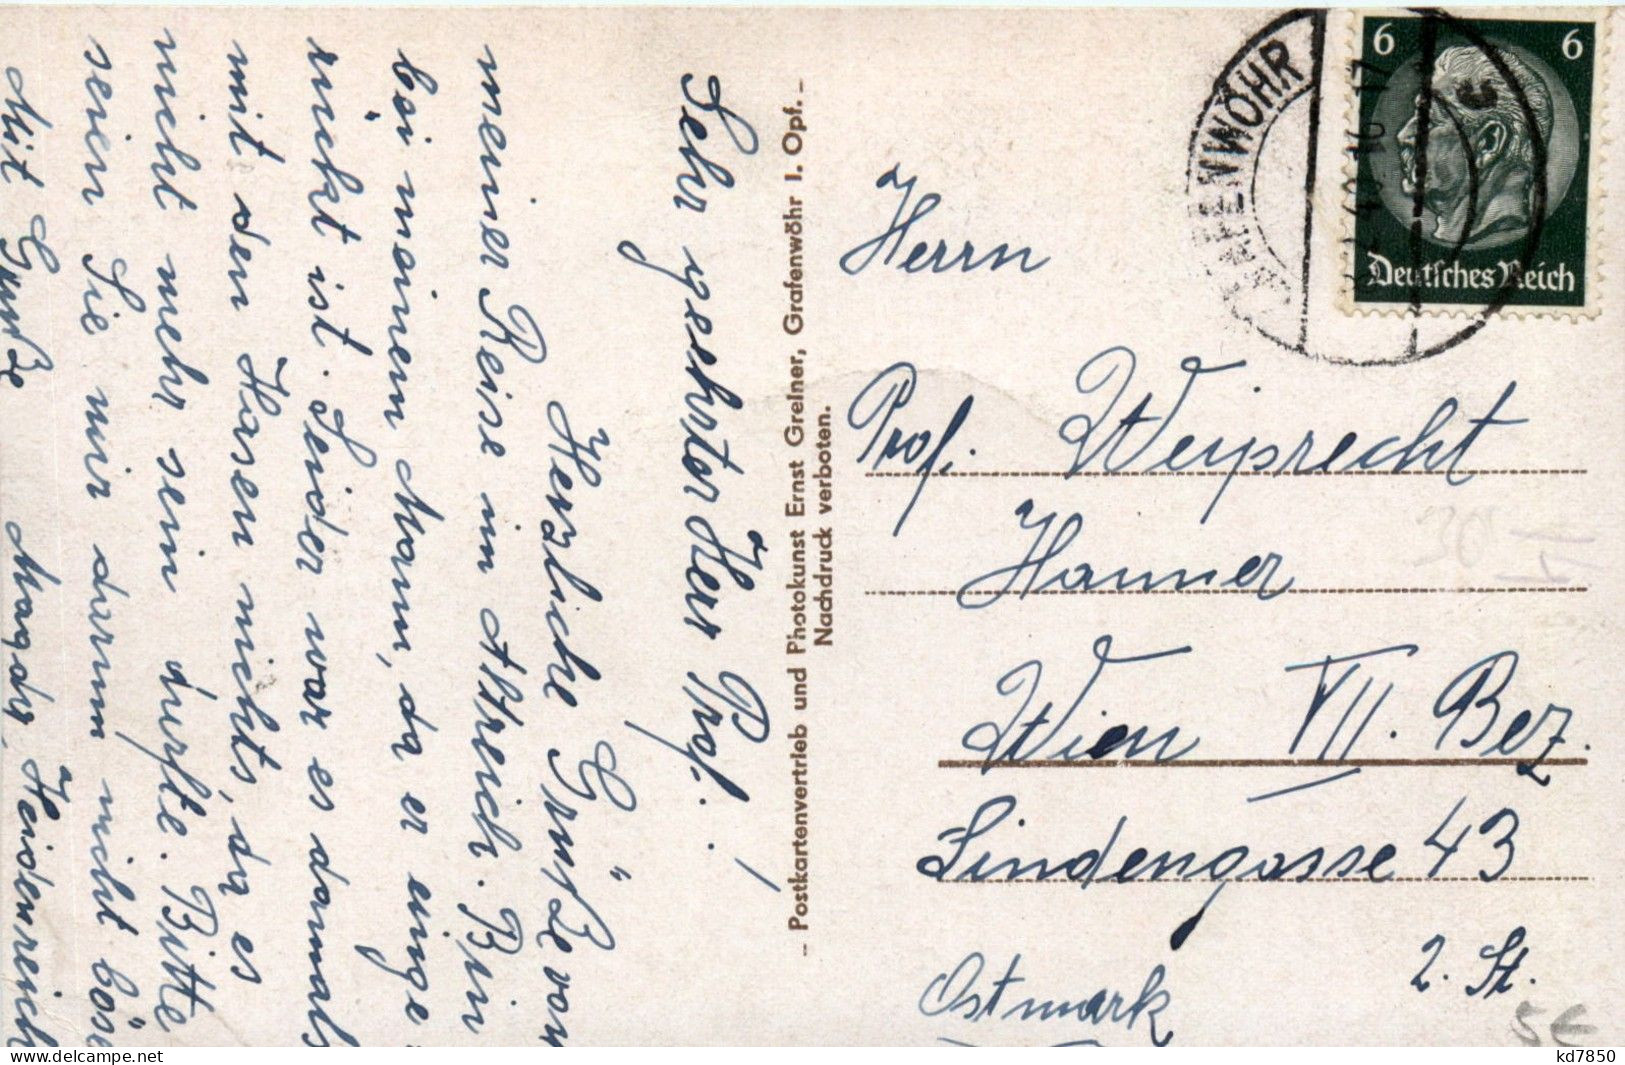 Sehr geehrter Herr Prof.!
Herzliche Grüße von
meiner Reise im Altreich. Bin
bei meinem Mann, da er einge
rückt ist. Leider war es damals
mit den Hasen nichts, da es
nicht mehr sein durfte. Bitte
seien Sie mir darum nicht böse
Mit Gruß Magda Heidenreich
– Postkartenvertrieb und Photokunst Ernst Greiner, Grafenwöhr i. Opf. –
Nachdruck verboten.
GRAFENWÖHR
40 16-17
c
6 6
Deutsches Reich
Herrn
Prof. Weyprecht
Hanner
Wien VII. Bez.
Lindengasse 43
2. St.
Ostmark
5€
kd7850